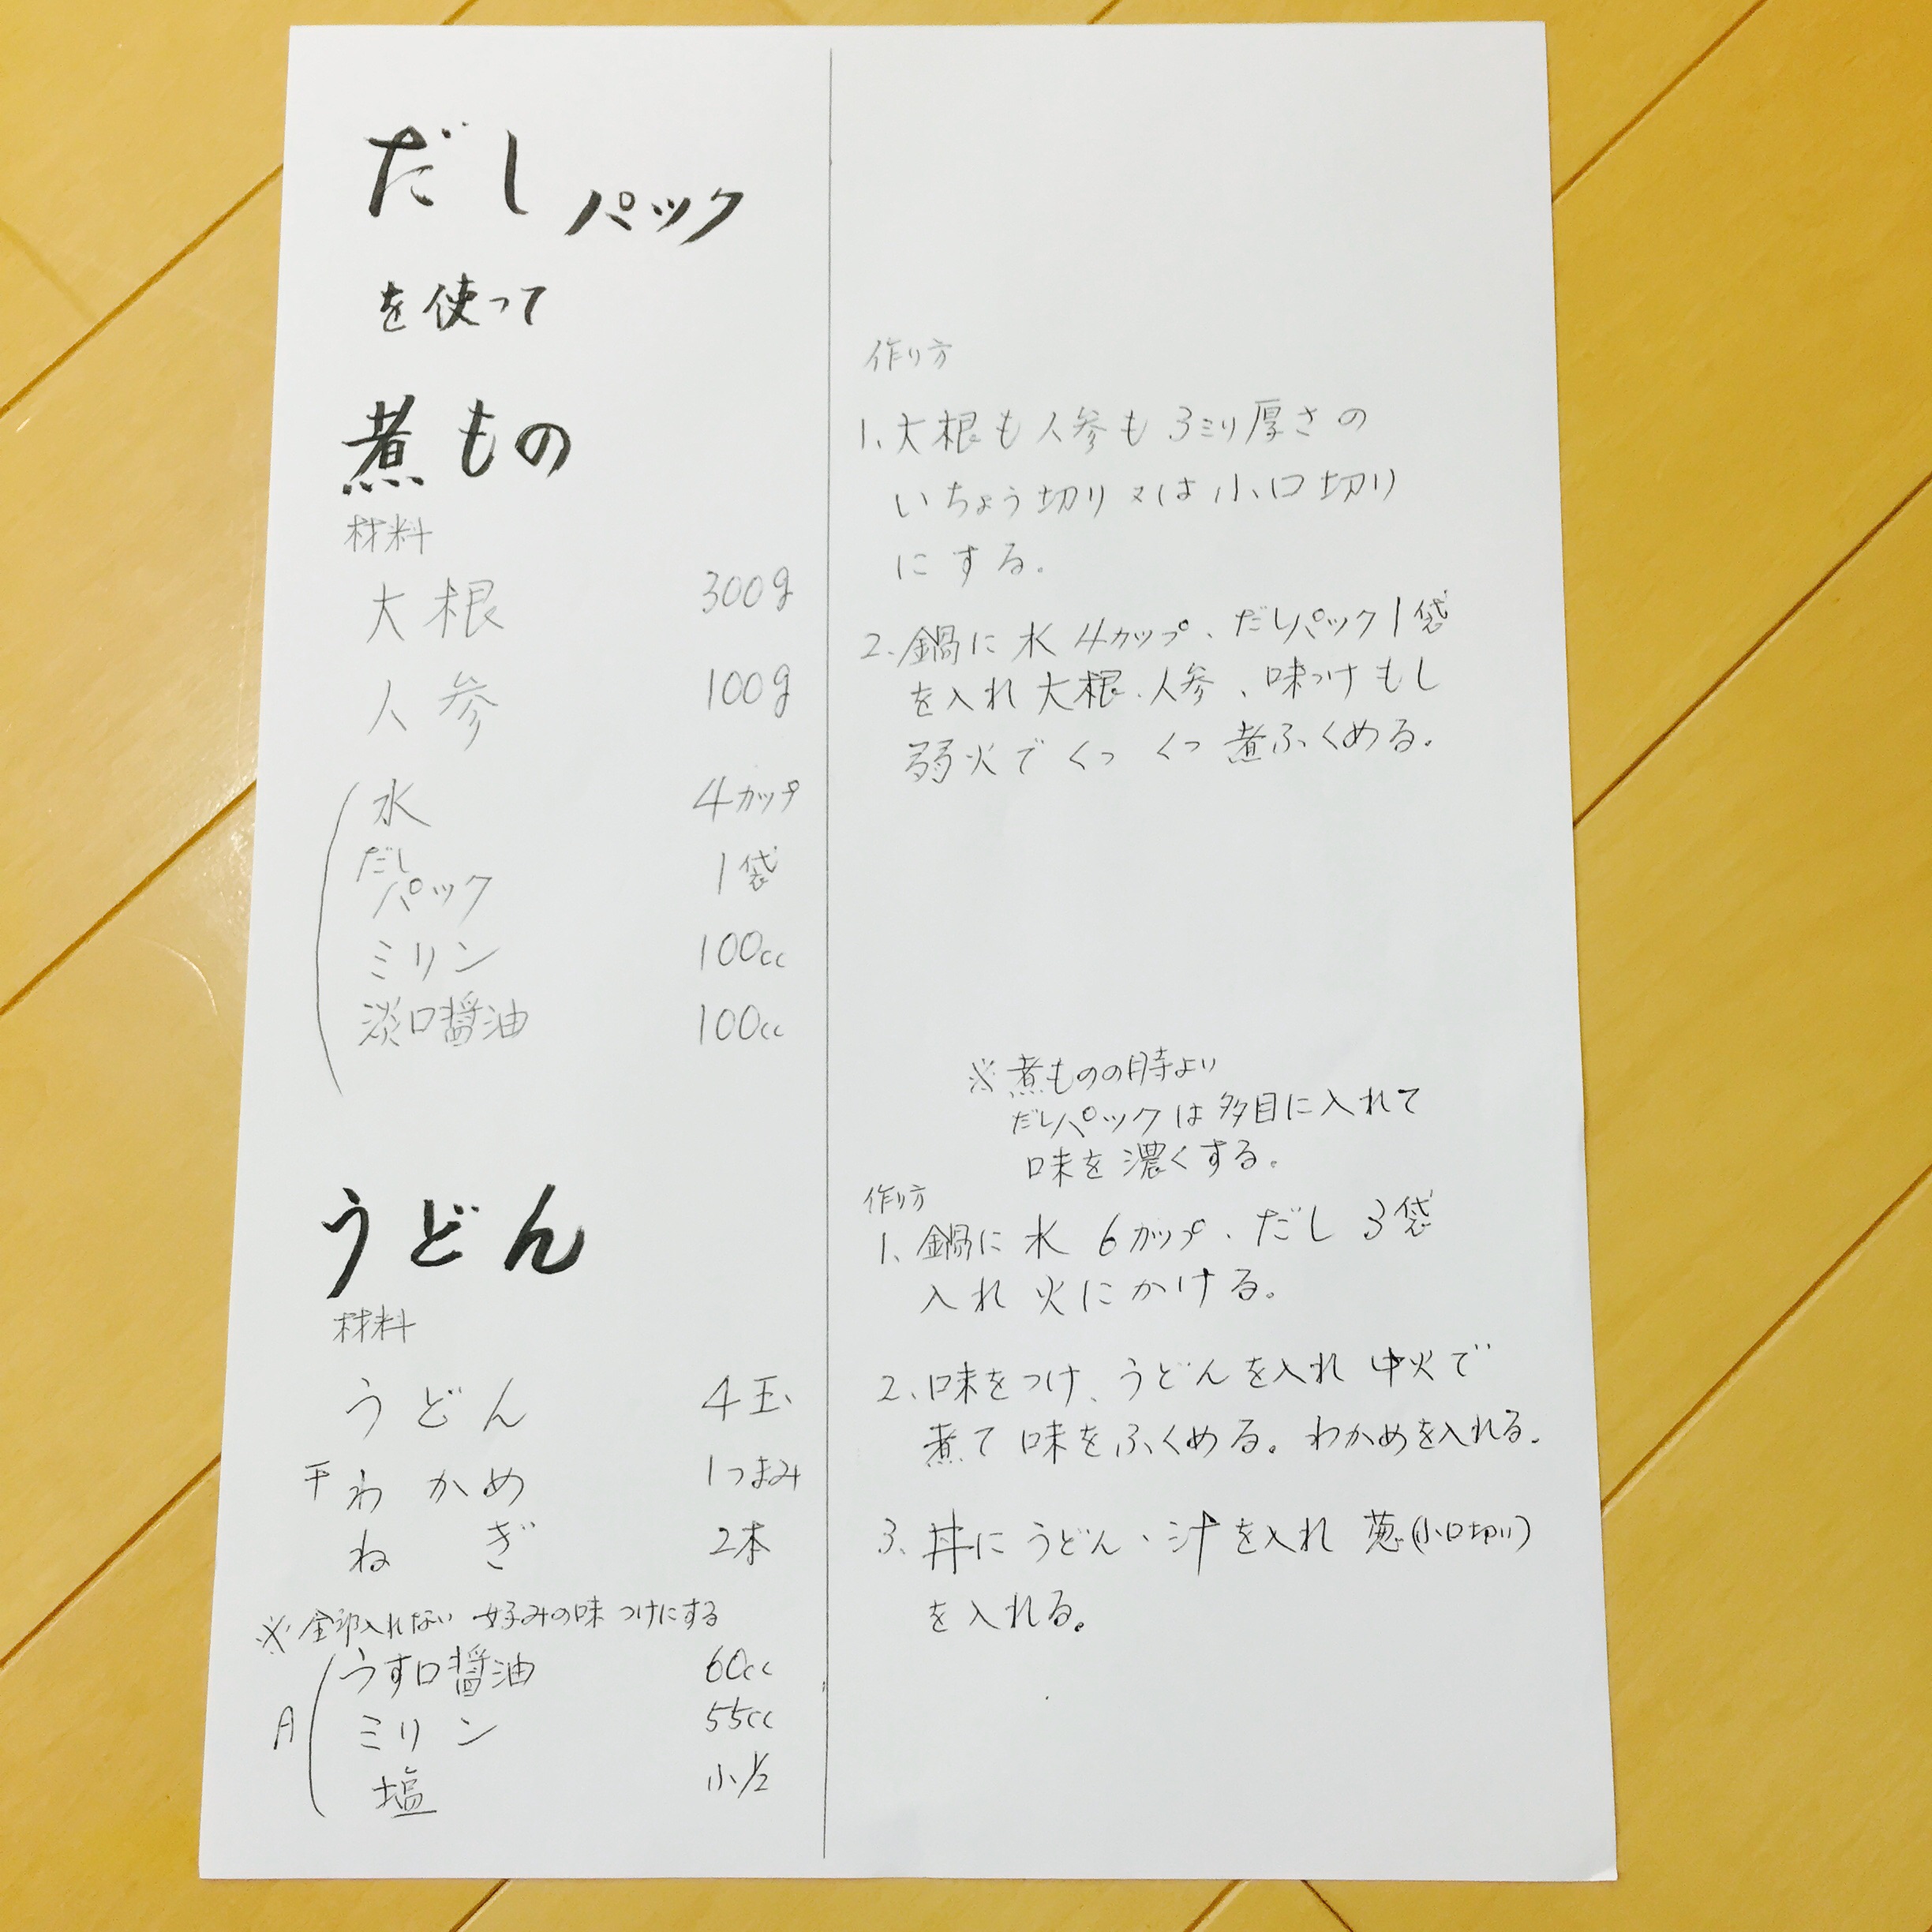 だしパック
を使って
煮もの
材料
大根 300g
人参 100g
水 4カップ
だし
パック 1袋
ミリン 100cc
淡口醤油 100cc
作り方
1、大根も人参も3ミリ厚さの
いちょう切り又は小口切り
にする。
2、鍋に水4カップ、だしパック1袋
を入れ大根、人参、味つけもし
弱火でくっくっ煮ふくめる。
うどん
材料
うどん 4玉
干わかめ 1つまみ
ねぎ 2本
※全部入れない 好みの味つけにする
A
うす口醤油 60cc
ミリン 55cc
塩 小1/2
※煮ものの時より
だしパックは多目に入れて
味を濃くする。
作り方
1、鍋に水6カップ、だし3袋
入れ火にかける。
2、味をつけ、うどんを入れ中火で
煮て味をふくめる。わかめを入れる。
3、丼にうどん、汁を入れ葱(小口切り)
を入れる。